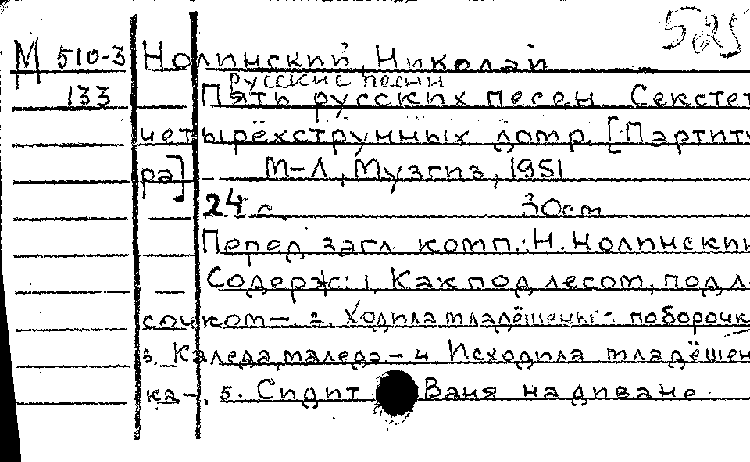 525
М 510-3 Нолинский, Николай
русские песни
133 Пять русских песен Секстет
четырёхструнных домр. [Партиту
ра] М-Л, Музгиз, 1951
24 с. 30см
Перед загл. комп.: Н. Нолинский
Содерж: 1. Как под лесом, под ле
сочком - 2. Ходила младёшенька по борочк
3. Каледа, маледа - 4. Исходила младёшен
ка -. 5. Сидит Ваня на диване.